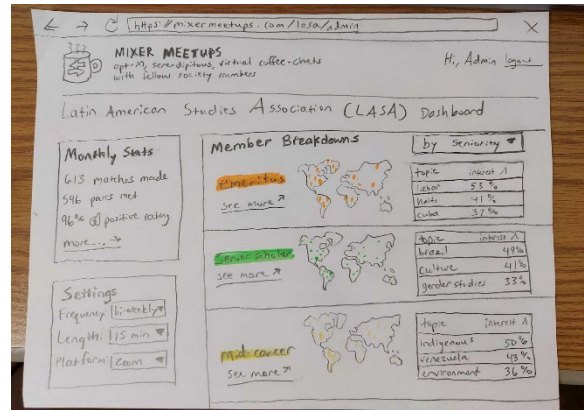 https://mixermeetups.com/lasa/admin
MIXER MEETUPS
opt-in, serendipitous, virtual coffee-chats
with fellow society members
Hi, Admin logout
Latin American Studies Association (LASA) Dashboard
Monthly Stats
613 matches made
596 pairs met
96% positive rating
more... →
Settings
Frequency: bi-weekly ▼
Length: 15 min ▼
Platform: Zoom ▼
Member Breakdowns
by Seniority ▼
emeritus
see more ↗
topic interest ∧
labor 53%
Haiti 41%
cuba 37%
Senior scholar
see more ↗
topic interest ∧
brazil 49%
culture 41%
gender studies 33%
Mid-career
See more ↗
topic interest ∧
indigenous 50%
venezuela 43%
environment 36%